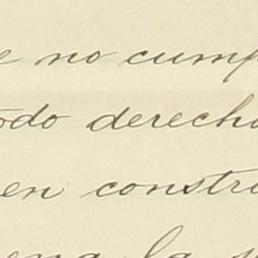 e no cump
odo derecho
en constru
ena la p